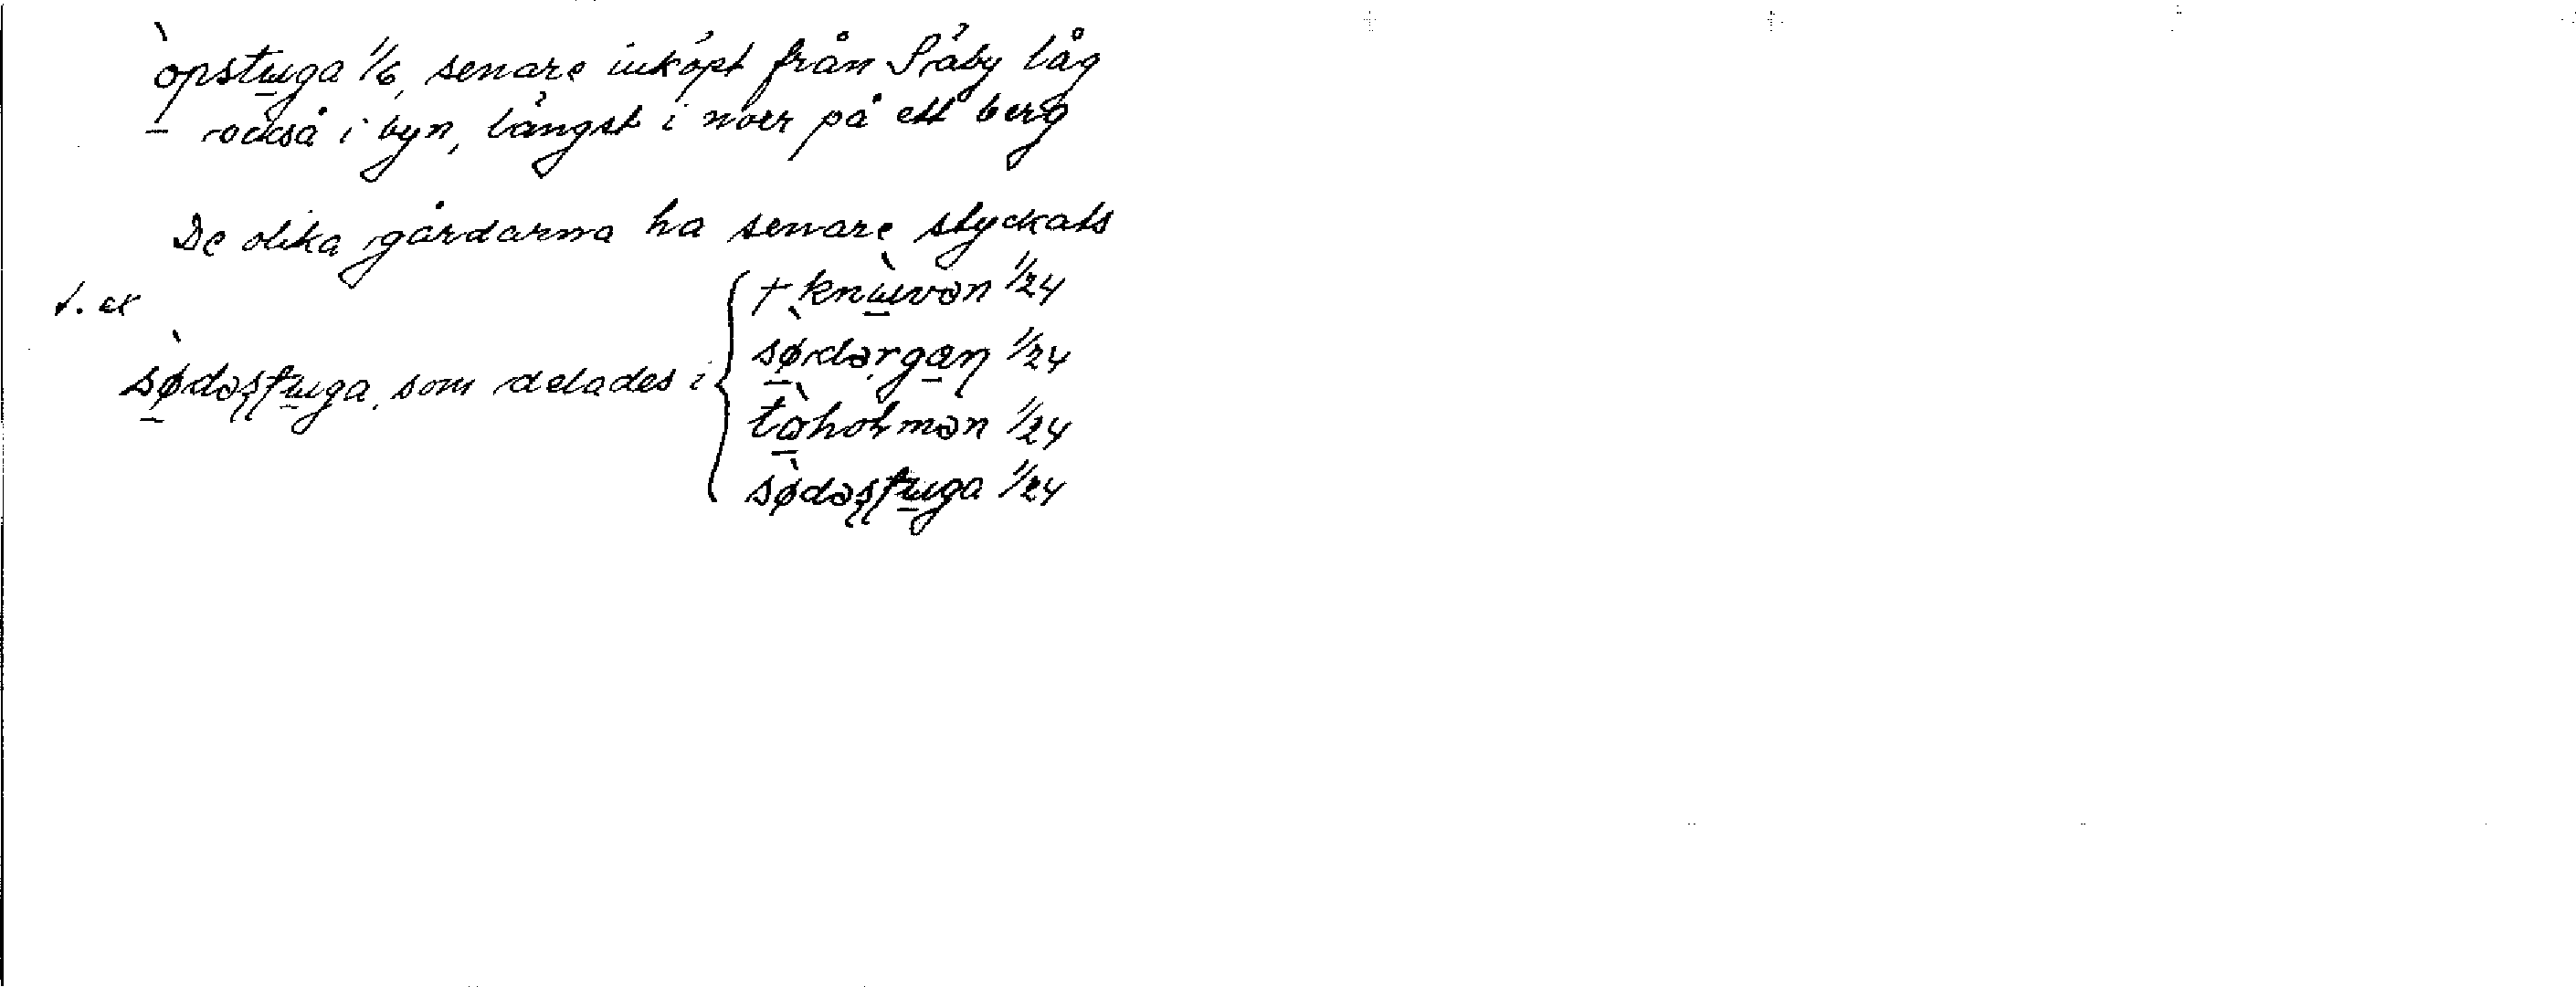 òpstuga 1/6, senare inköpt från Säby låg
också i byn, längst i norr på ett berg
De olika gårdarna ha senare styckats
t. ex
sø̀dəʂʈuga, som delades i
+ knùvən 1/24
sø̀dərgaɳ 1/24
tàholmən 1/24
sø̀dəʂʈuga 1/24